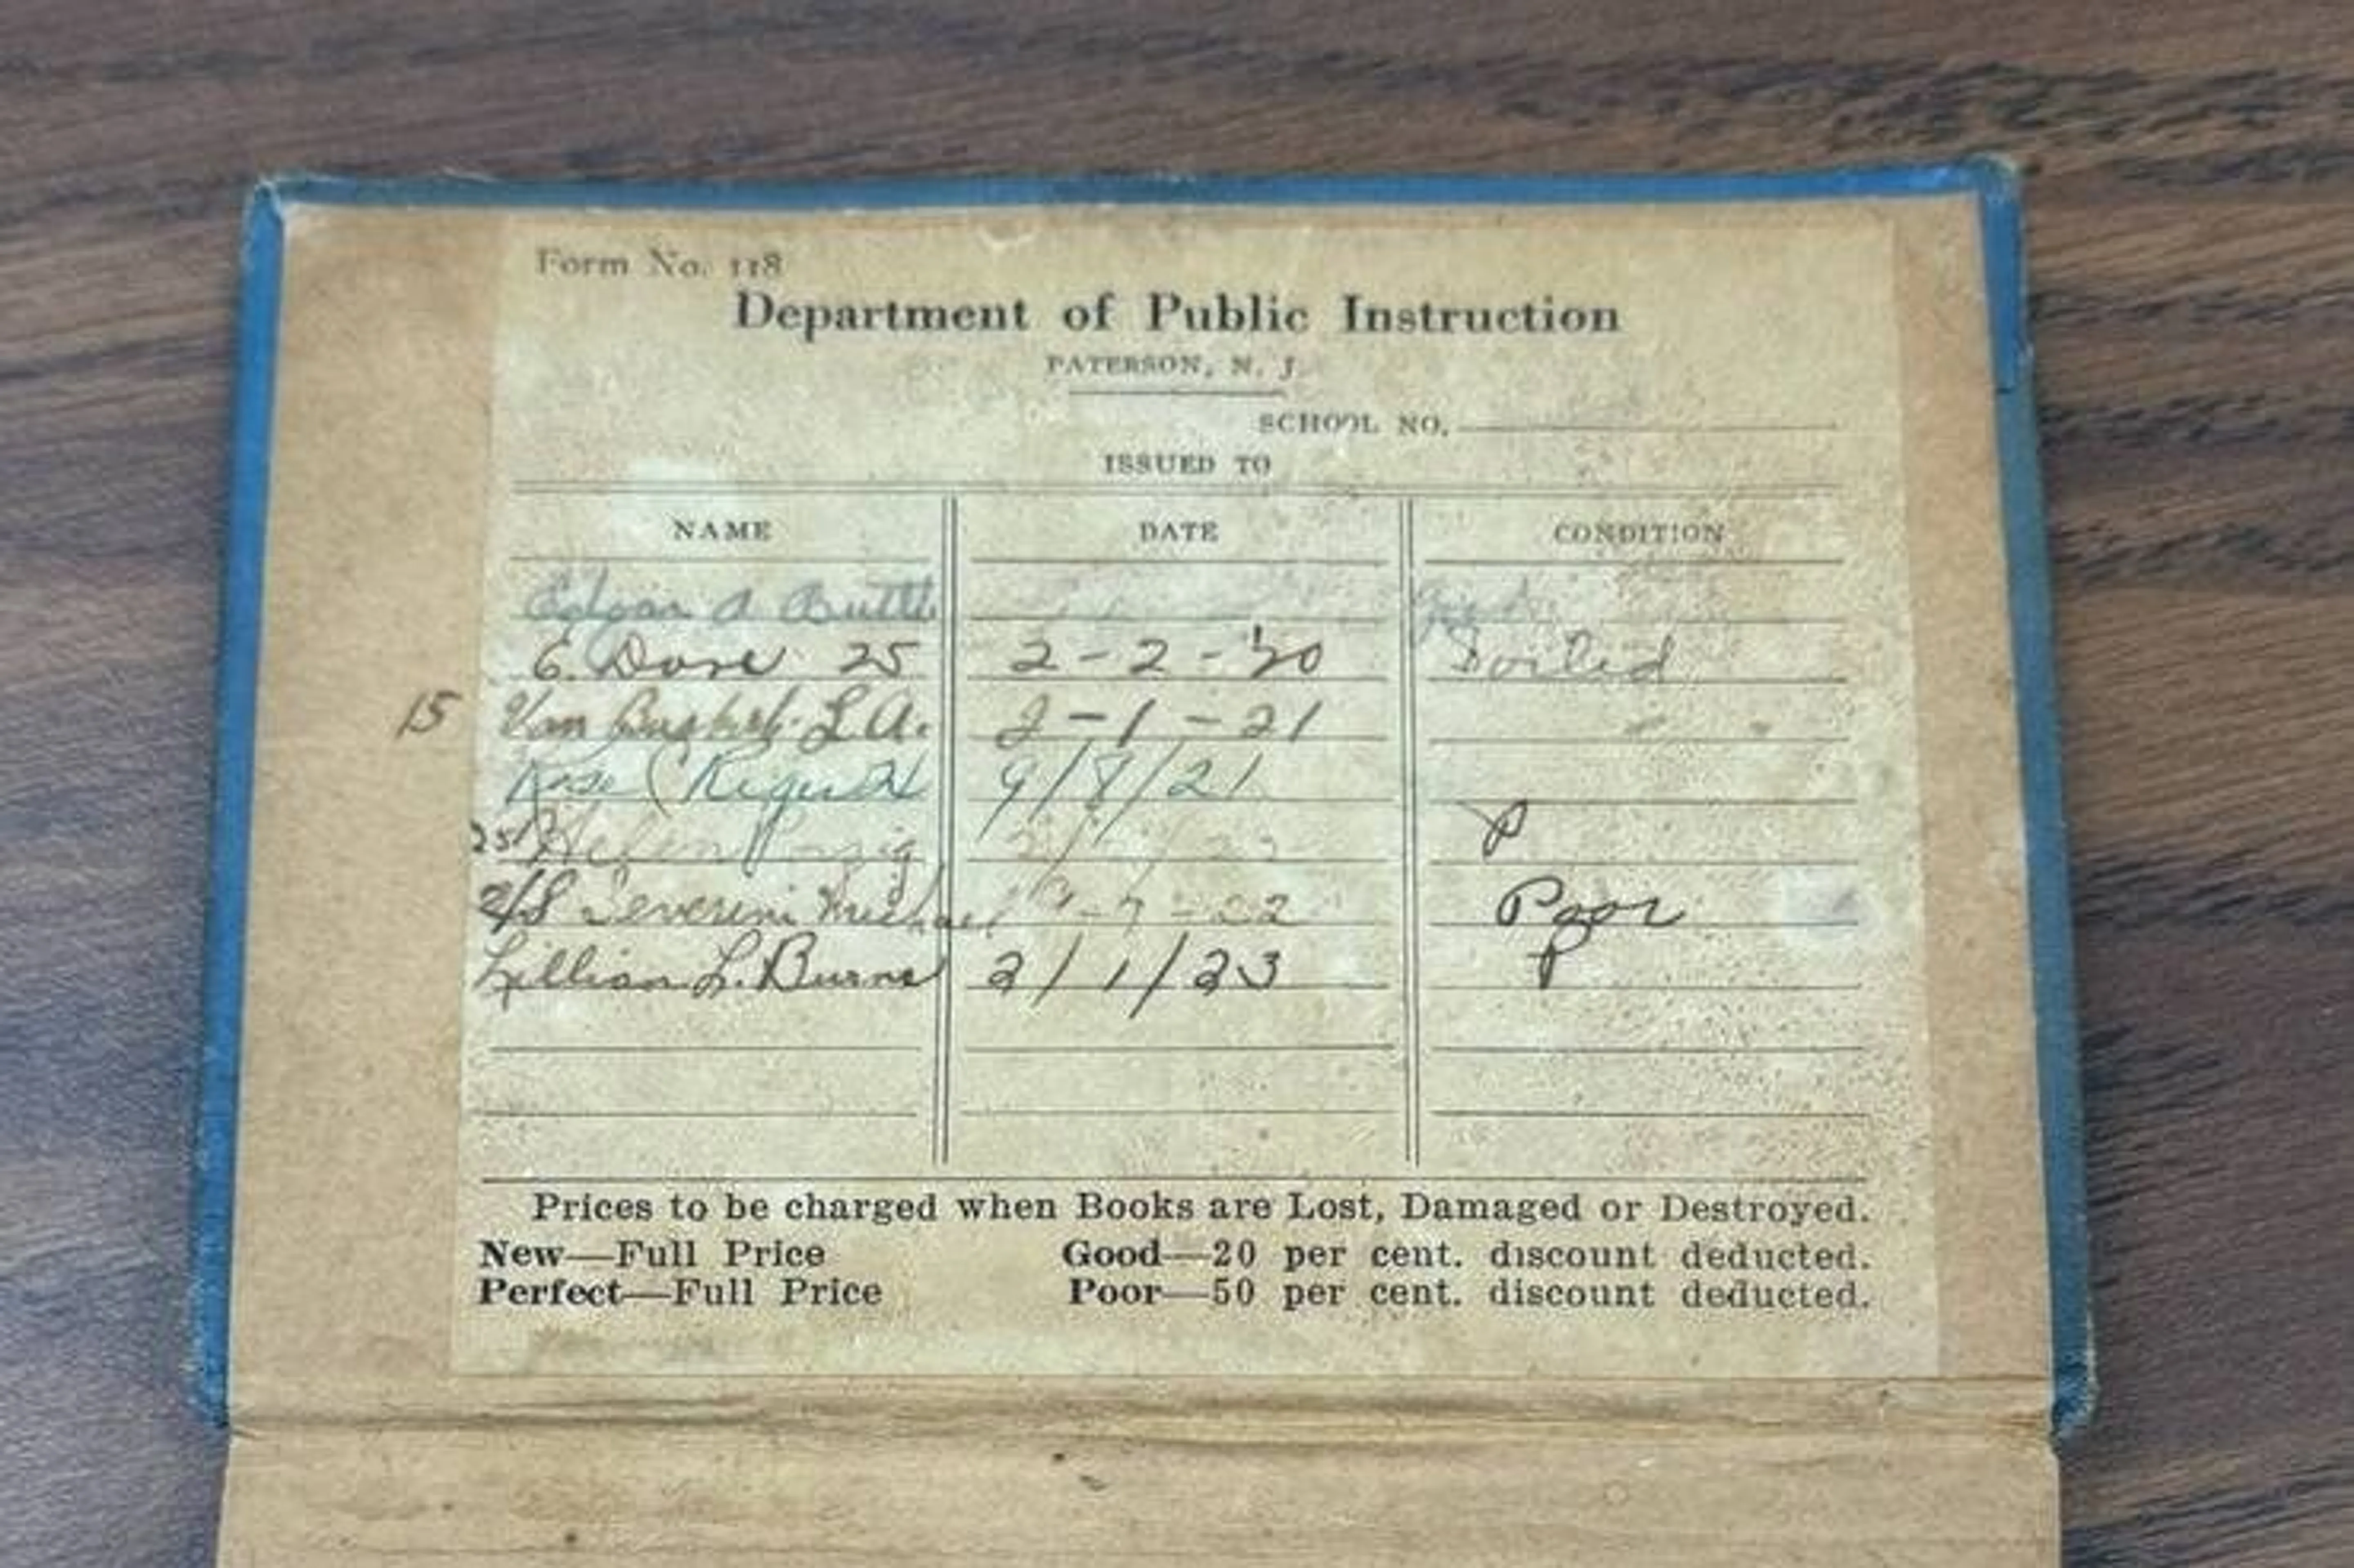 Form No. 118
Department of Public Instruction
PATERSON, N. J.
SCHOOL NO.
ISSUED TO
NAME DATE CONDITION
Edgar A.
E. Dore 25 2-2-'20 Soiled
15 Van L.A. 2-1-21 " "
Rose 9/8/21
25 Helen P
Severini Michael -7-22 Poor
Lillian L. Burns 2/1/23 P
Prices to be charged when Books are Lost, Damaged or Destroyed.
New—Full Price Good—20 per cent. discount deducted.
Perfect—Full Price Poor—50 per cent. discount deducted.